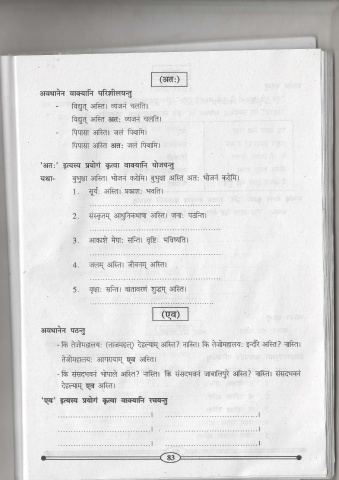 (अतः)
अवधानेन वाक्यानि परिशीलयन्तु
- विद्युत् अस्ति। व्यजनं चलति।
विद्युत् अस्ति अतः व्यजनं चलति।
- पिपासा अस्ति। जलं पिबामि।
पिपासा अस्ति अतः जलं पिबामि।
'अतः' इत्यस्य प्रयोगं कृत्वा वाक्यानि योजयन्तु
यथा- बुभुक्षा अस्ति। भोजनं करोमि। बुभुक्षा अस्ति अतः भोजनं करोमि।
1. सूर्यः अस्ति। प्रकाशः भवति।
2. संस्कृतम् आधुनिकभाषा अस्ति। जनाः पठन्ति।
3. आकाशे मेघाः सन्ति। वृष्टिः भविष्यति।
4. जलम् अस्ति। जीवनम् अस्ति।
5. वृक्षाः सन्ति। वातावरणं शुद्धम् अस्ति।
(एव)
अवधानेन पठन्तु
- किं तेजोमहालयः (ताजमहल) देहल्याम् अस्ति? नास्ति। किं तेजोमहालयः इन्दौरे अस्ति? नास्ति।
तेजोमहालयः आगरायाम् एव अस्ति।
- किं संसदभवनं भोपाले अस्ति? नास्ति। किं संसदभवनं जाबालिपुरे अस्ति? नास्ति। संसदभवनं
देहल्याम् एव अस्ति।
'एव' इत्यस्य प्रयोगं कृत्वा वाक्यानि रचयन्तु
83